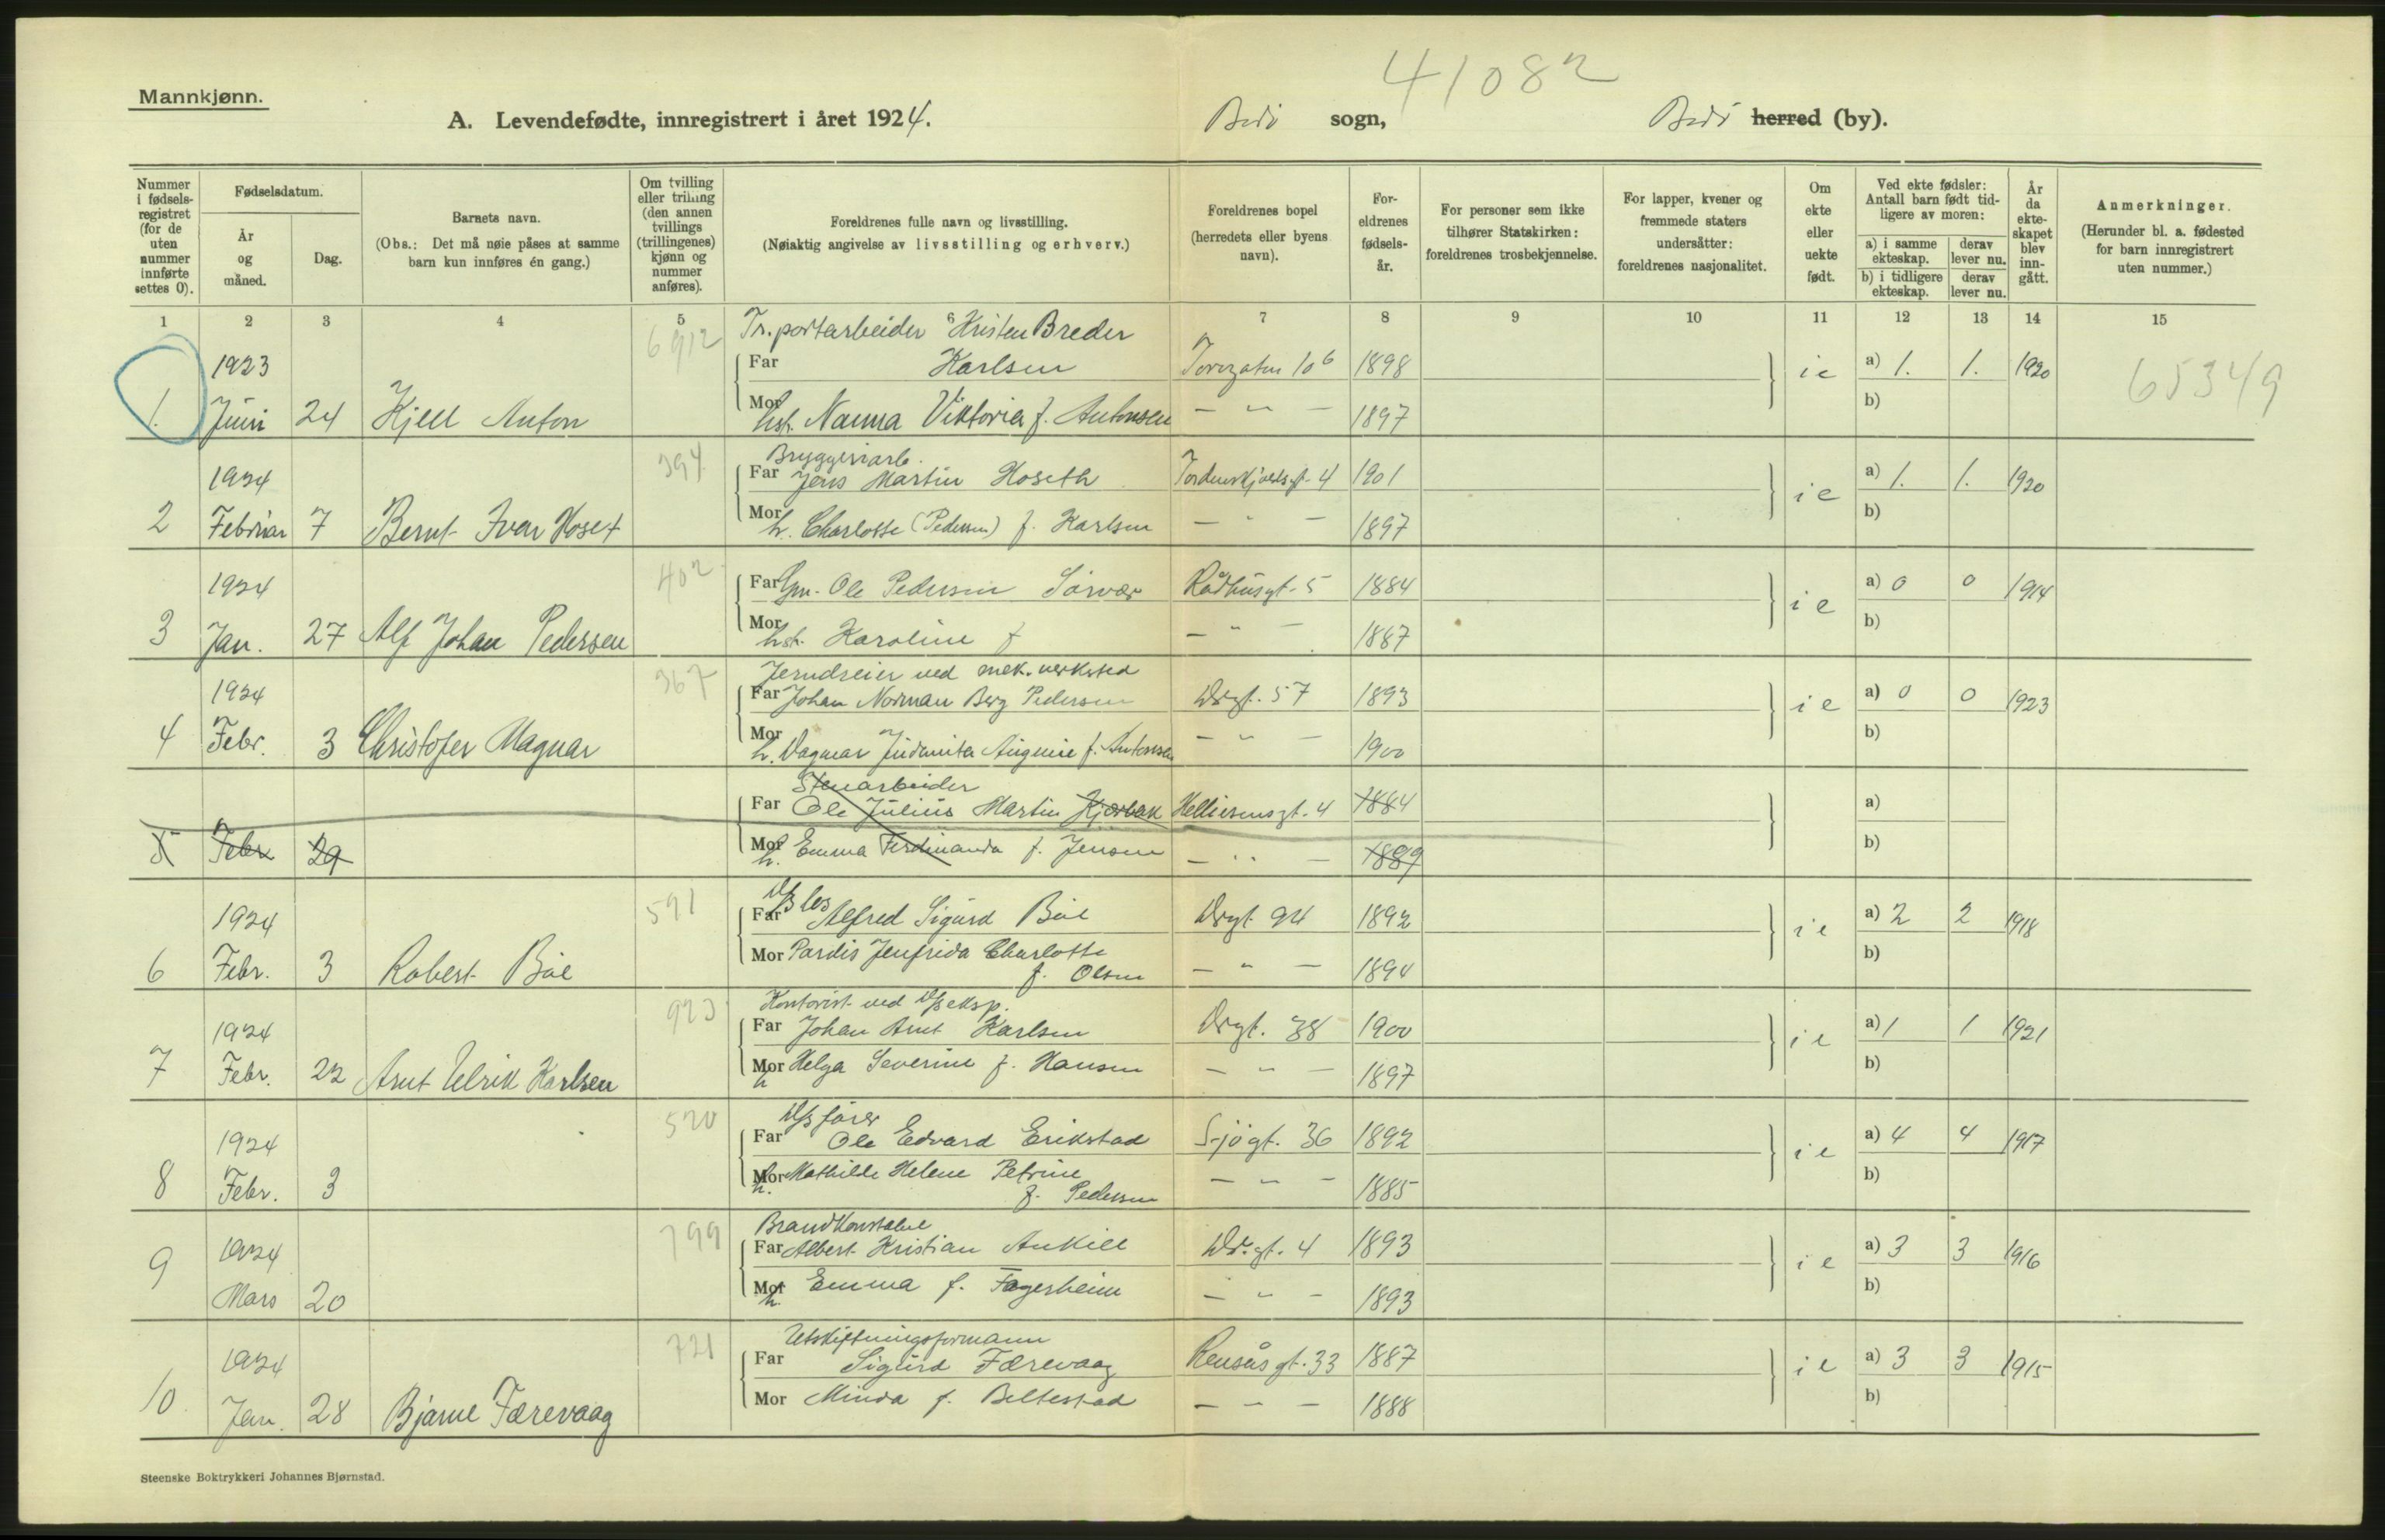 41082
Mannkjønn.
A. Levendefødte, innregistrert i året 1924. Bodö sogn, Bodö herred (by).
Nummer i fødselsregistret (for de uten nummer innførte settes 0).
Fødselsdatum.
År og måned.
Dag.
Barnets navn.
(Obs.: Det må nøie påses at samme barn kun innføres én gang.)
Om tvilling eller trilling (den annen tvillings (trillingenes) kjønn og nummer anføres).
Foreldrenes fulle navn og livsstilling.
(Nøiaktig angivelse av livsstilling og erhverv.)
Foreldrenes bopel (herredets eller byens navn).
Foreldrenes fødselsår.
For personer som ikke tilhører Statskirken: foreldrenes trosbekjennelse.
For lapper, kvener og fremmede staters undersåtter: foreldrenes nasjonalitet.
Om ekte eller uekte født.
Ved ekte fødsler: Antall barn født tidligere av moren:
a) i samme ekteskap. derav lever nu.
b) i tidligere ekteskap. derav lever nu.
År da ekteskapet blev inngått.
Anmerkninger.
(Herunder bl. a. fødested for barn innregistrert uten nummer.)
1 2 3 4 5 6 7 8 9 10 11 12 13 14 15
6912 Tr.portarbeider Kristen Breder
1923 Far Karlsen 1898 ie a) 1. 1. 1920 65349
1. Juni 24 Kjell Anton Mor hst. Nanna Viktoria f. Antonsen — " — 1897 b)
394 Bryggeriarb.
1924 Far Jens Martin Hoseth Tordenskjoldsgt. 4 1901 ie a) 1. 1. 1920
2 Februar 7 Bernt Ivar Hoset Mor h. Charlotte (Pedersen) f. Karlsen — " — 1897 b)
402
1924 Far Ole Pedersen Sörvær Rådhusgt. 5 1884 ie a) 0 0 1914
3 Jan. 27 Alf Johan Pedersen Mor hst. Karoline f — " — 1887 b)
367 Jerndreier ved mek. verksted
1924 Far Johan Norman Berg Pedersen Drgt. 57 1893 ie a) 0 0 1923
4 Febr. 3 Christofer Magnar Mor h. Dagmar Augusie f. Antonsen — " — 1900 b)
Stenarbeider
Far Ole Julius Martin Kjærbak Helliesensgt. 4 1884 a)
5 Febr 29 Mor h. Emma Ferdinanda f. Jensen — " — 1889 b)
591
1924 Far Alfred Sigurd Böe Drgt 94 1892 ie a) 2 2 1918
6 Febr. 3 Robert Böe Mor Pardis Jenfrida Charlotte
f. Olsen — " — 1894 b)
923 Kontorist ved D/s eksp.
1924 Far Johan Arnt Karlsen Drgt. 38 1900 ie a) 1 1 1921
7 Febr. 22 Arnt Ulrik Karlsen Mor h Helga Severine f. Hansen — " — 1897 b)
520 D/s förer
1924 Far Ole Edvard Erikstad Sjögt. 36 1892 ie a) 4 4 1917
8 Febr. 3 Mor h. Mathilde Helene Petrine
f. Pedersen — " — 1885 b)
799 Brandkonstabel
1924 Far Albert Kristian Ankile Dr.gt. 4 1893 ie a) 3 3 1916
9 Mars 20 Mor h. Emma f. Fagerheim — " — 1893 b)
721 Utskiftningsformann
1924 Far Sigurd Færevaag Rensåsgt. 33 1887 ie a) 3 3 1915
10. Jan. 28 Bjarne Færevaag Mor Minda f. Beltestad — " — 1888 b)
Steenske Boktrykkeri Johannes Bjørnstad.